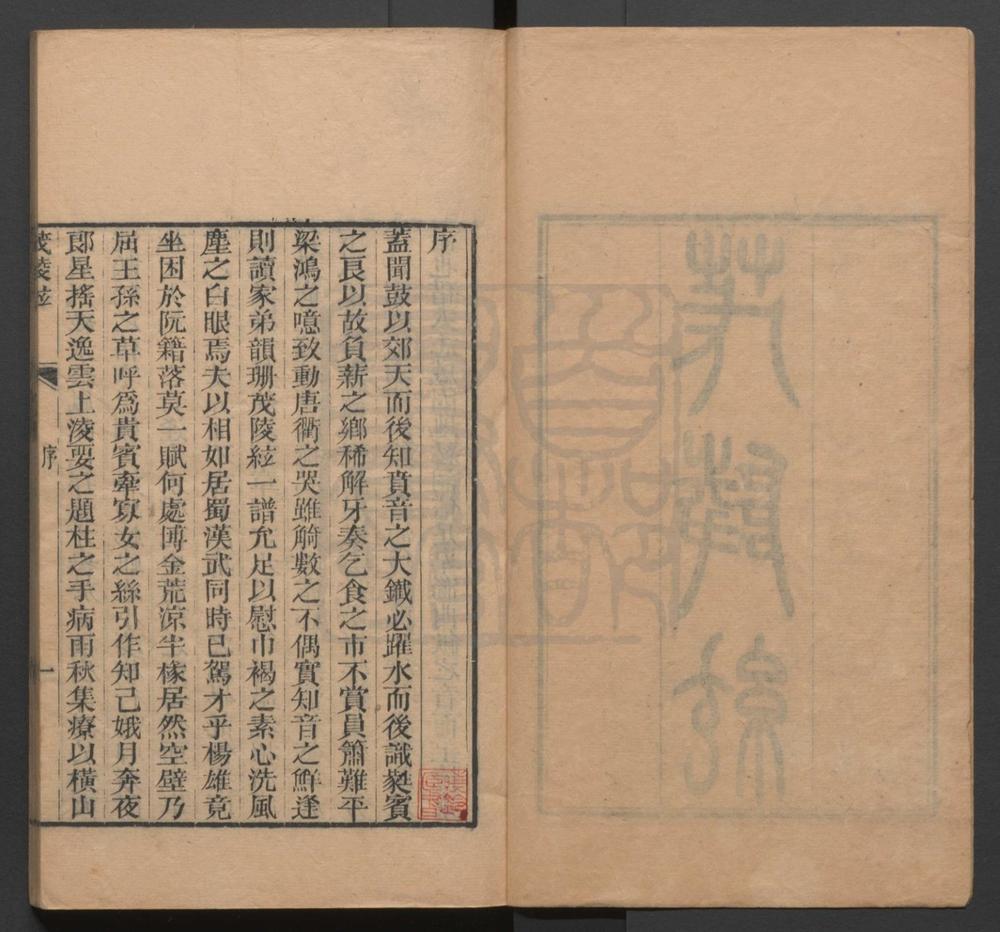 序
蓋聞鼓以郊天而後知賁音之大鐵必躍水而後識蕤賓
之良以故負薪之鄉稀解牙奏乞食之市不賞員簫難平
梁鴻之噫致動唐衢之哭雖觭數之不偶實知音之鮮逢
則讀家弟韻珊茂陵絃一譜允足以慰巾褐之素心洗風
塵之白眼焉夫以相如居蜀漢武同時已駕才乎楊雄竟
坐困於阮籍落莫一賦何處博金荒涼半椽居然空壁乃
屈王孫之草呼為貴賓牽寡女之絲引作知己娥月奔夜
郎星搖天逸雲上淩要之題柱之手病雨秋集療以橫山
茂陵絃
序
一